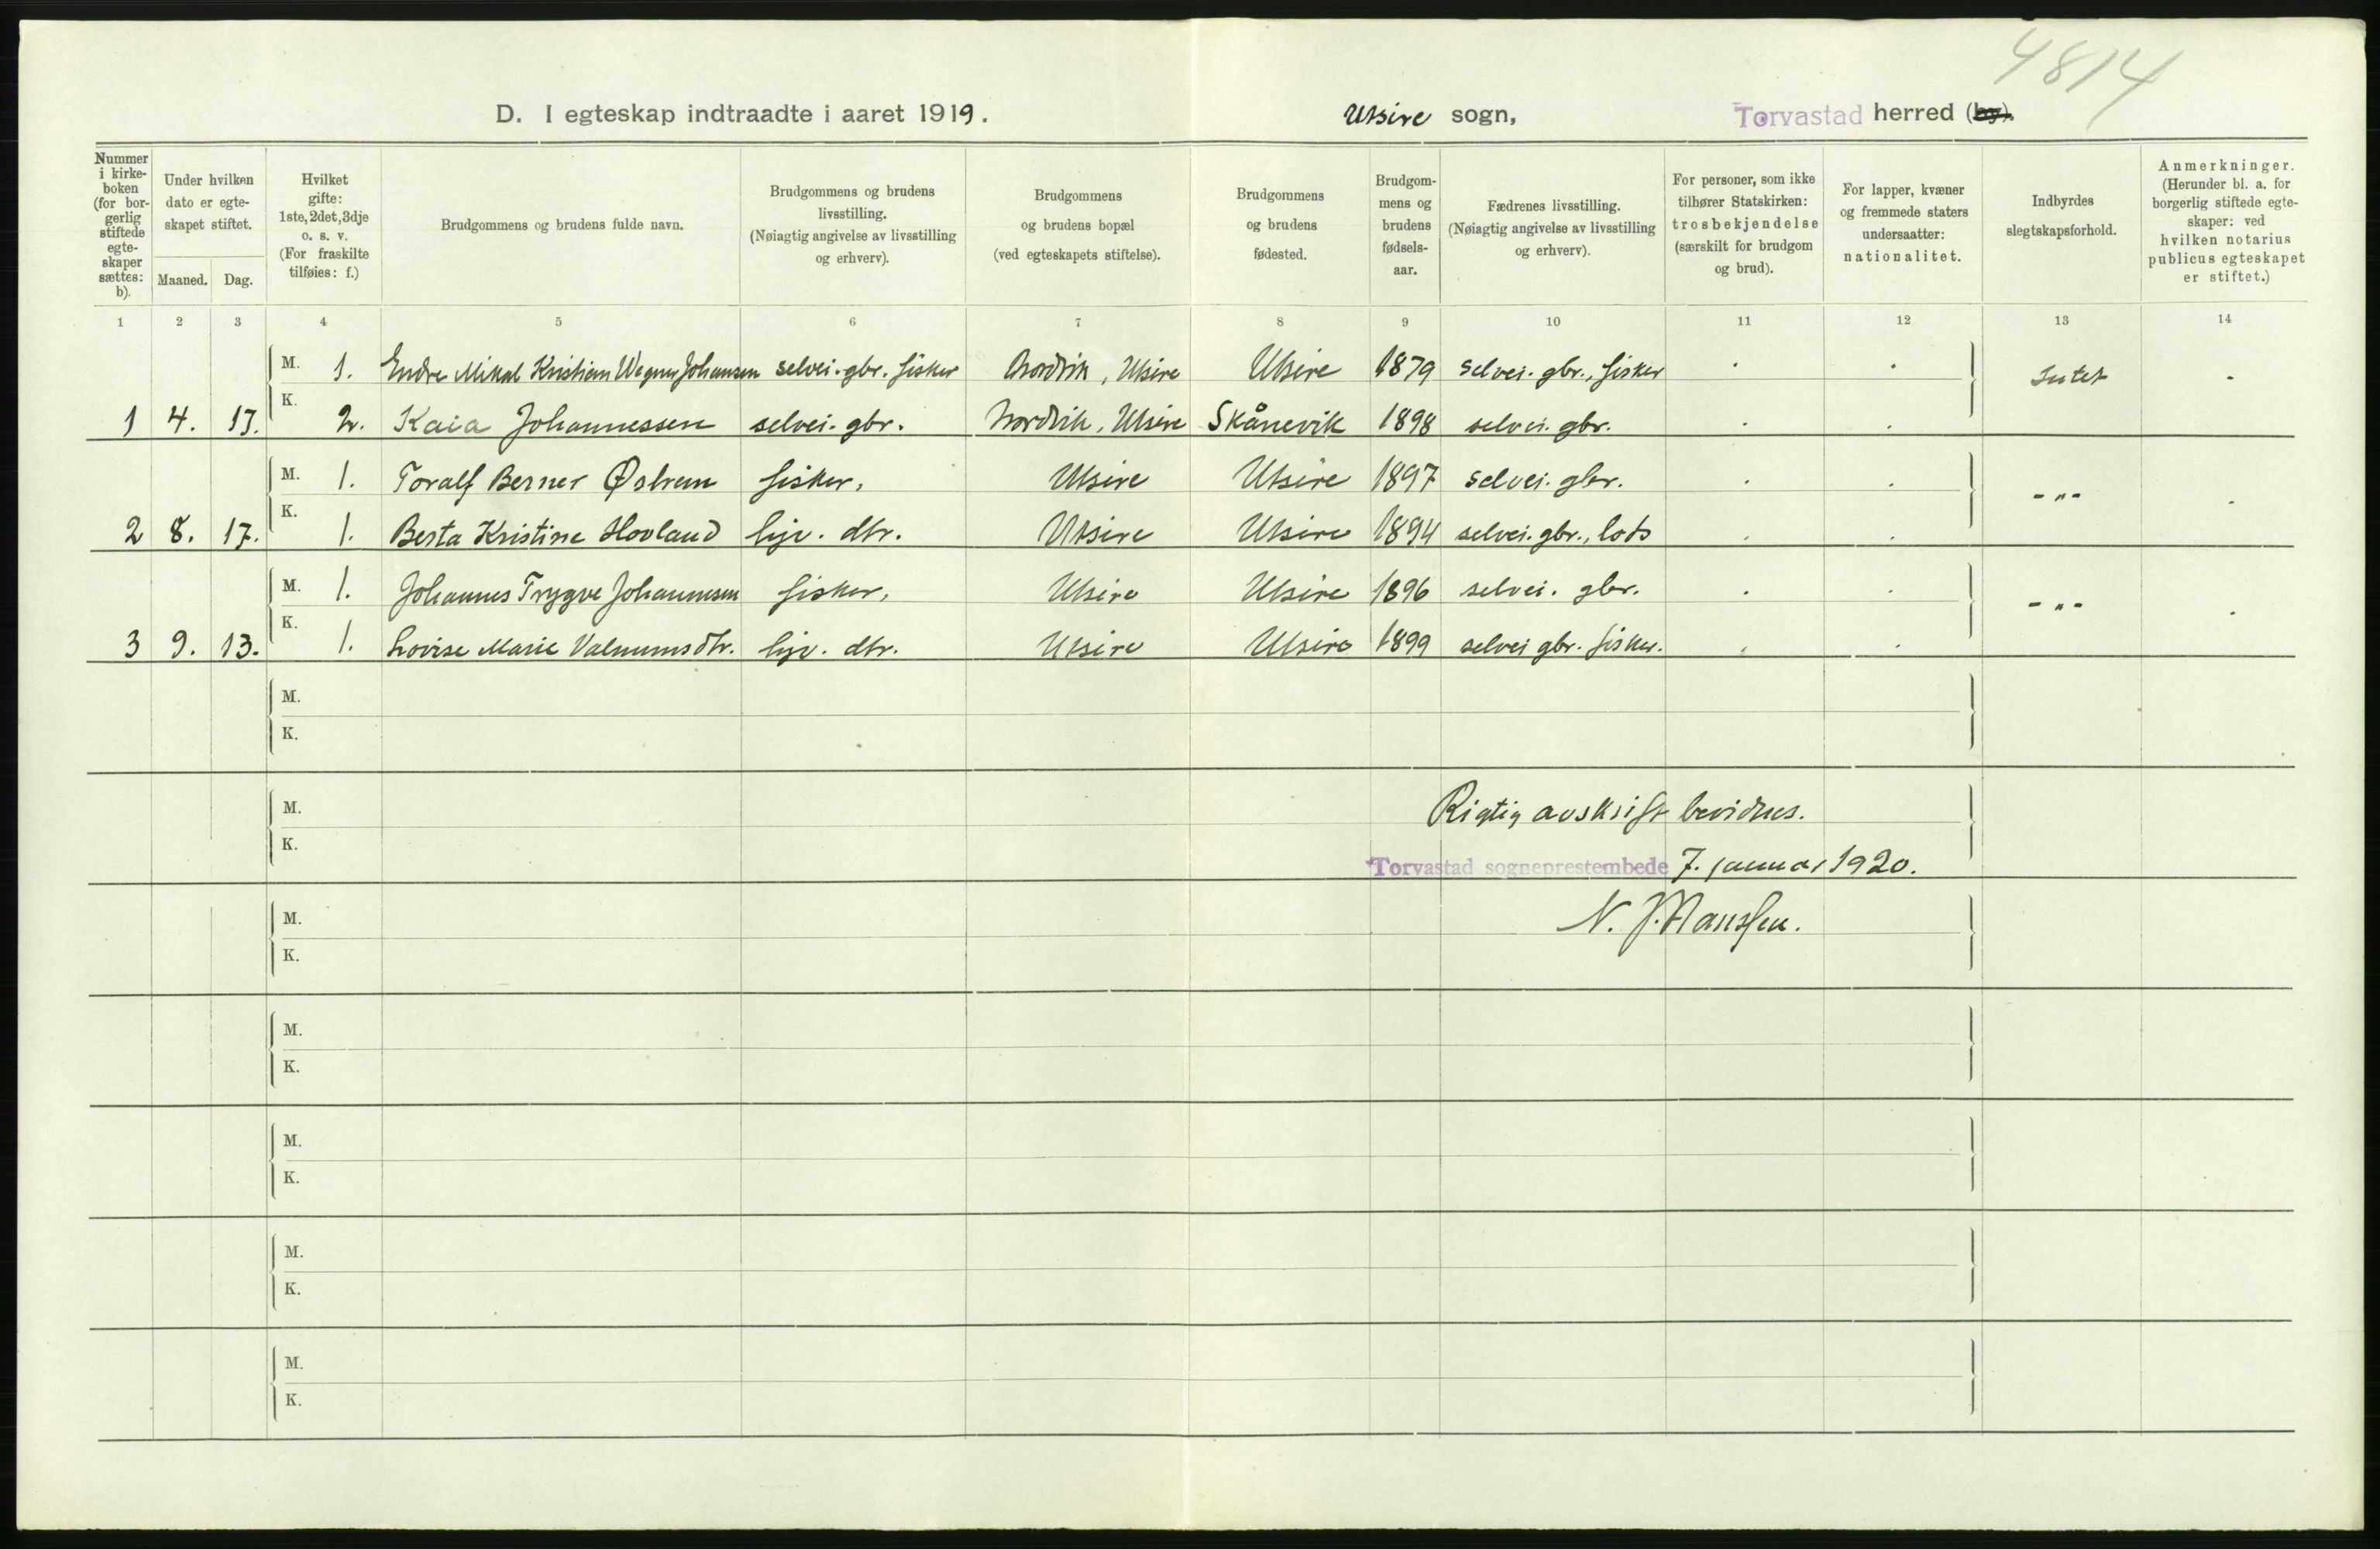 4814
D. I egteskap indtraadte i aaret 1919. Utsire sogn, Torvastad herred (by).
Nummer i kirke-boken (for bor-gerlig stiftede egte-skaper sættes: b).
Under hvilken dato er egte-skapet stiftet.
Maaned. Dag.
Hvilket gifte: 1ste, 2det, 3dje o. s. v. (For fraskilte tilføies: f.)
Brudgommens og brudens fulde navn.
Brudgommens og brudens livsstilling. (Nøiagtig angivelse av livsstilling og erhverv).
Brudgommens og brudens bopæl (ved egteskapets stiftelse).
Brudgommens og brudens fødested.
Brudgom-mens og brudens fødsels-aar.
Fædrenes livsstilling. (Nøiagtig angivelse av livsstilling og erhverv).
For personer, som ikke tilhører Statskirken: trosbekjendelse (særskilt for brudgom og brud).
For lapper, kvæner og fremmede staters undersaatter: nationalitet.
Indbyrdes slegtskapsforhold.
Anmerkninger. (Herunder bl. a. for borgerlig stiftede egte-skaper: ved hvilken notarius publicus egteskapet er stiftet.)
1 2 3 4 5 6 7 8 9 10 11 12 13 14
M. 1. Endre Mikal Kristian Wegner Johansen selvei. gbr. fisker Nordvik, Utsire Utsire 1879 selvei. gbr., fisker Intet -
1 4. 17. K. 2. Kaia Johannessen selvei. gbr. Nordvik, Utsire Skånevik 1898 selvei. gbr.
M. 1. Toralf Berner Østrem fisker, Utsire Utsire 1897 selvei. gbr. - " -
2 8. 17. K. 1. Berta Kristine Hovland hjv. dtr. Utsire Utsire 1894 selvei. gbr., lods
M. 1. Johannes Trygve Johannesen fisker, Utsire Utsire 1896 selvei. gbr. - " -
3 9. 13. K. 1. Lovise Marie Valnumsdtr. hjv. dtr. Utsire Utsire 1899 selvei gbr. fisker.
M.
K.
M. Rigtig avskrift bevidnes.
K.
Torvastad sogneprestembede 7. januar 1920.
M. N. J. Hanssen.
K.
M.
K.
M.
K.
M.
K.
M.
K.